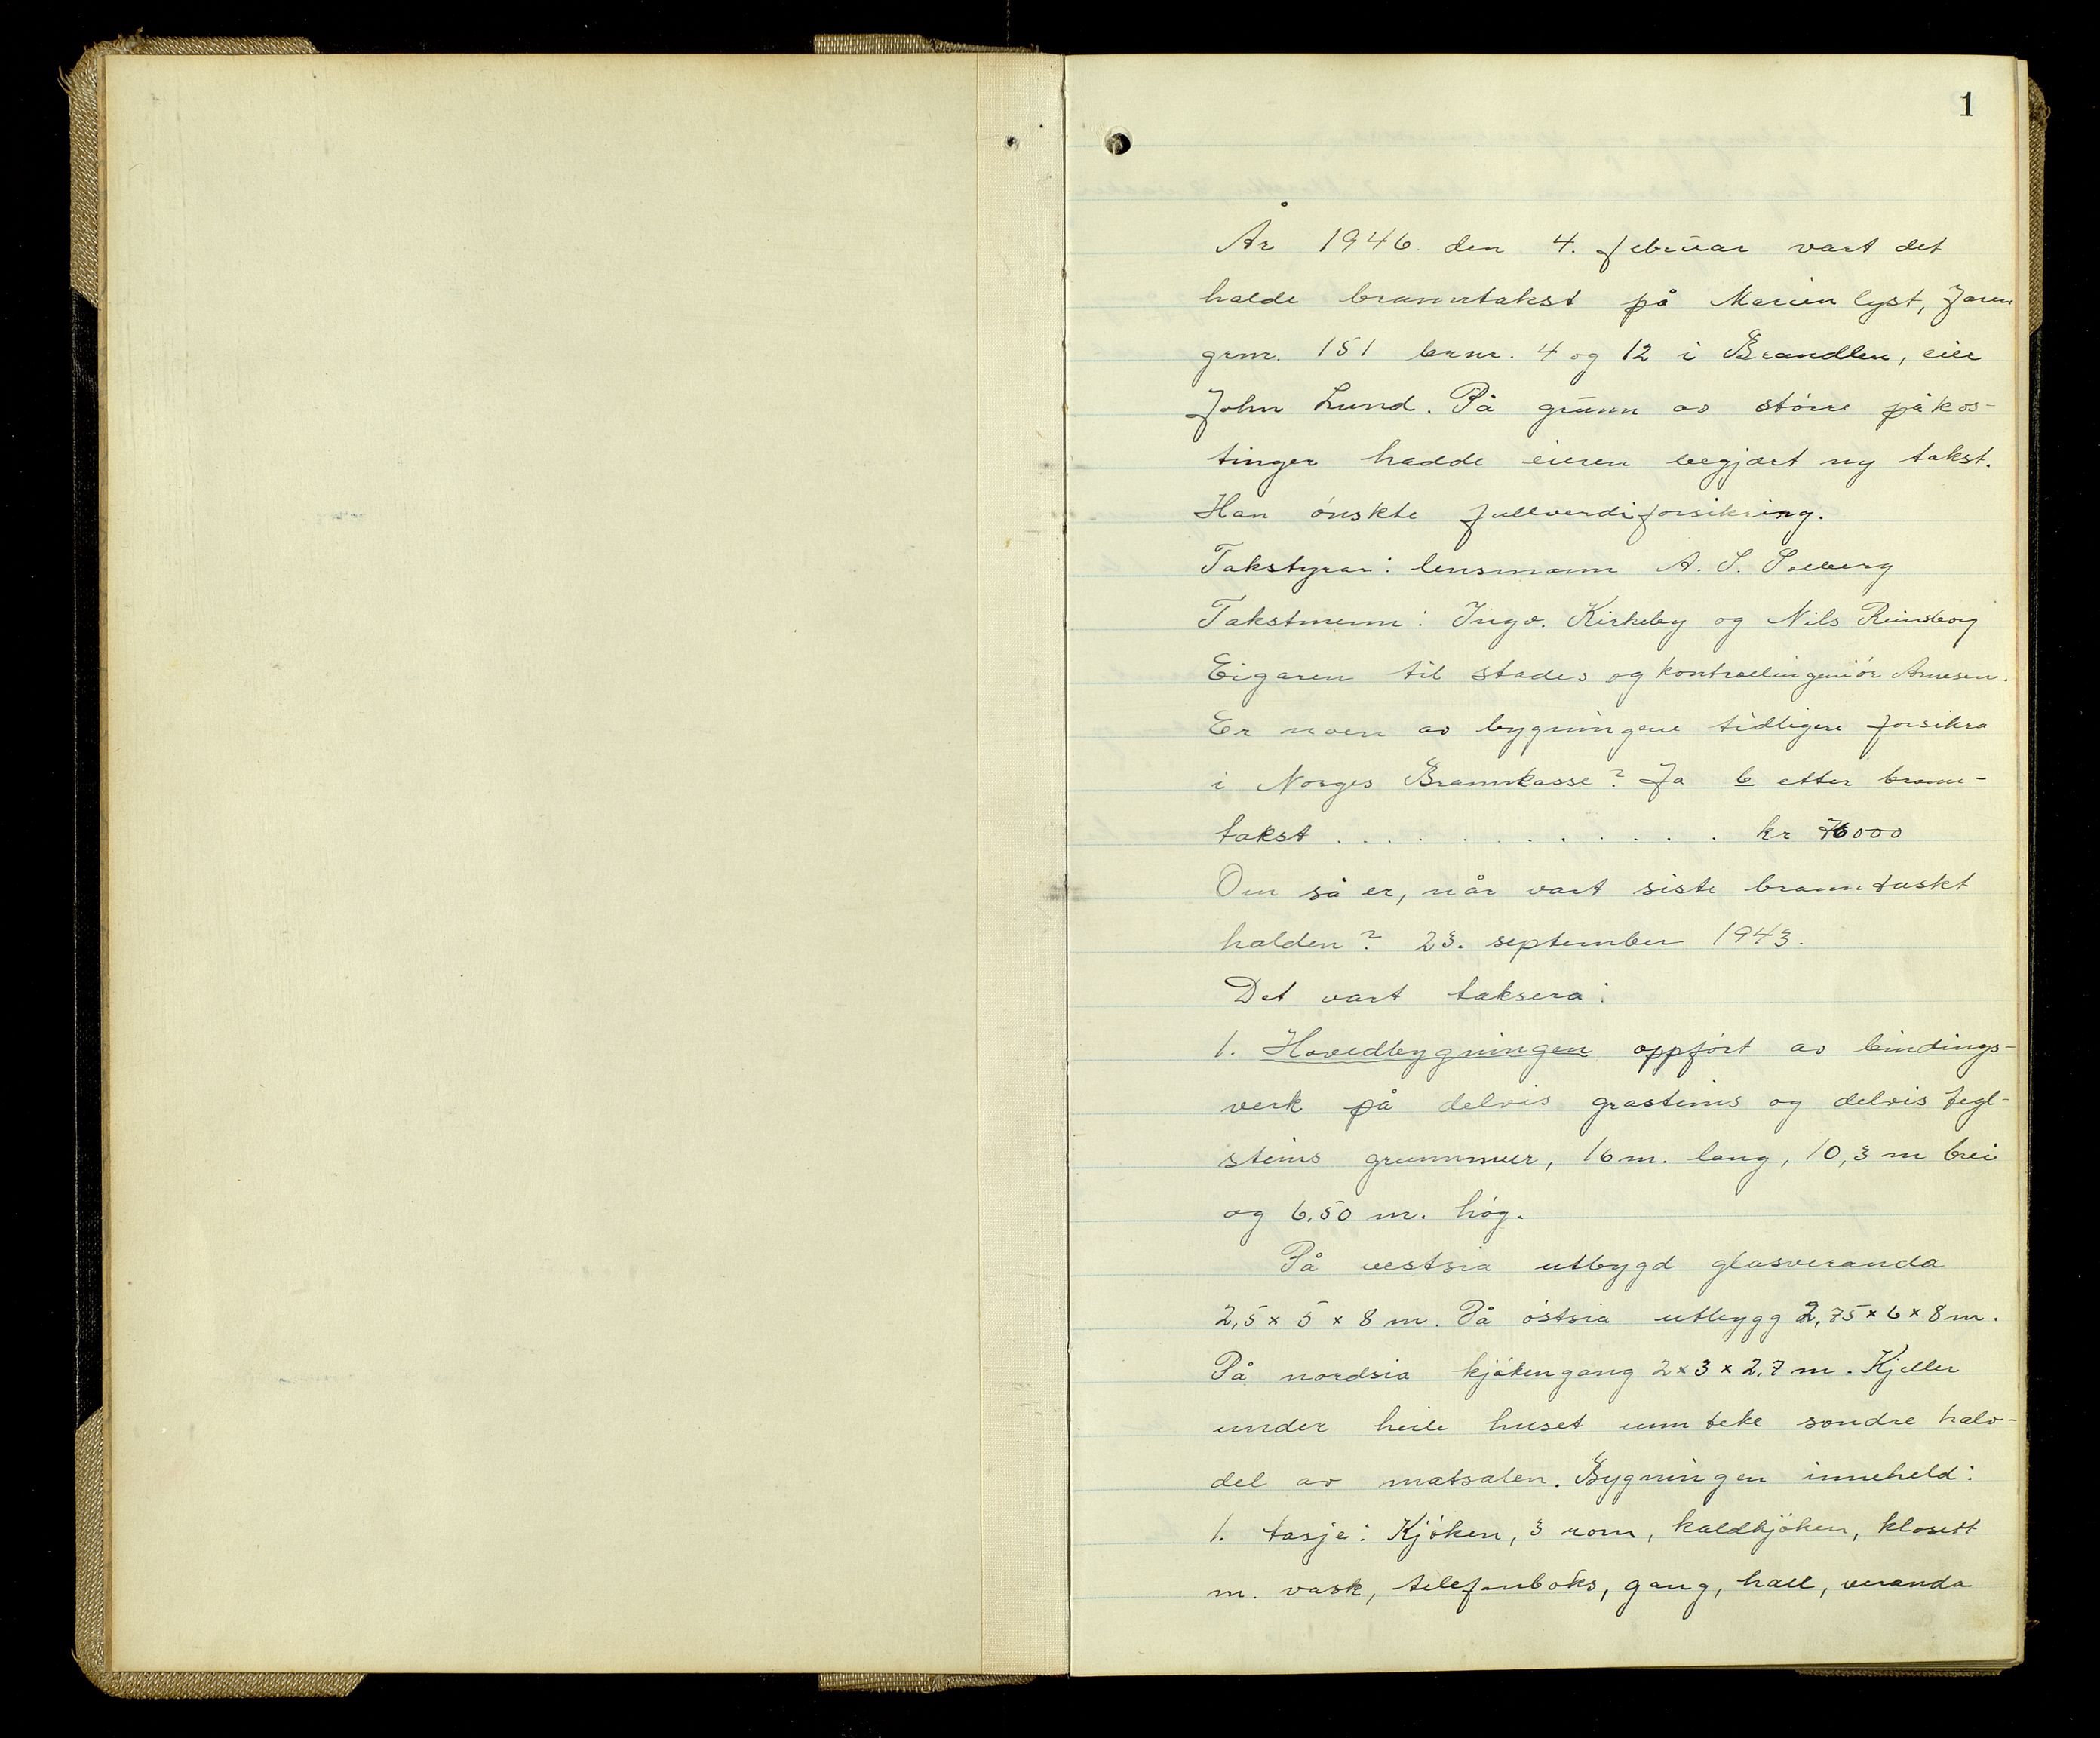 1
År 1946 den 4. februar vart det
halde branntakst på Marienlyst, Jaren
grnr. 151 brnr. 4 og 12 i Brandbu, eier
John Lund. På grunn av större påkos-
tinger hadde eieren begjært ny takst.
Han önskte fullverdiforsikring.
Takstyrar: lensmann A. S. Solberg
Takstmenn: Ingv. Kirkeby og Nils
Eigaren til stades og kontrollingeniör Arnesen.
Er noen av bygningene tidligere forsikra
i Norges Brannkasse? Ja 6 etter brann-
takst . . . . . . . . . . . . kr 76000
Om så er, når vart siste branntaskt
halden? 23. september 1943.
Det vart taksera:
1. Hovedbygningen oppfört av bindings-
verk på delvis grasteins og delvis tegl-
steins grunnmur, 16 m. lang, 10,3 m brei
og 6,50 m. hög.
På vestsia utbygd glasveranda
2,5 x 5 x 8 m. På östsia utbygg 2,75 x 6 x 8 m.
På nordsia kjökengang 2 x 3 x 2,7 m. Kjeller
under heile huset unnteke sondre halv-
del av matsalen. Bygningen inneheld:
1. tasje: Kjöken, 3 rom, kaldkjöken, klosett
m. vask, telefonboks, gang, hall, veranda